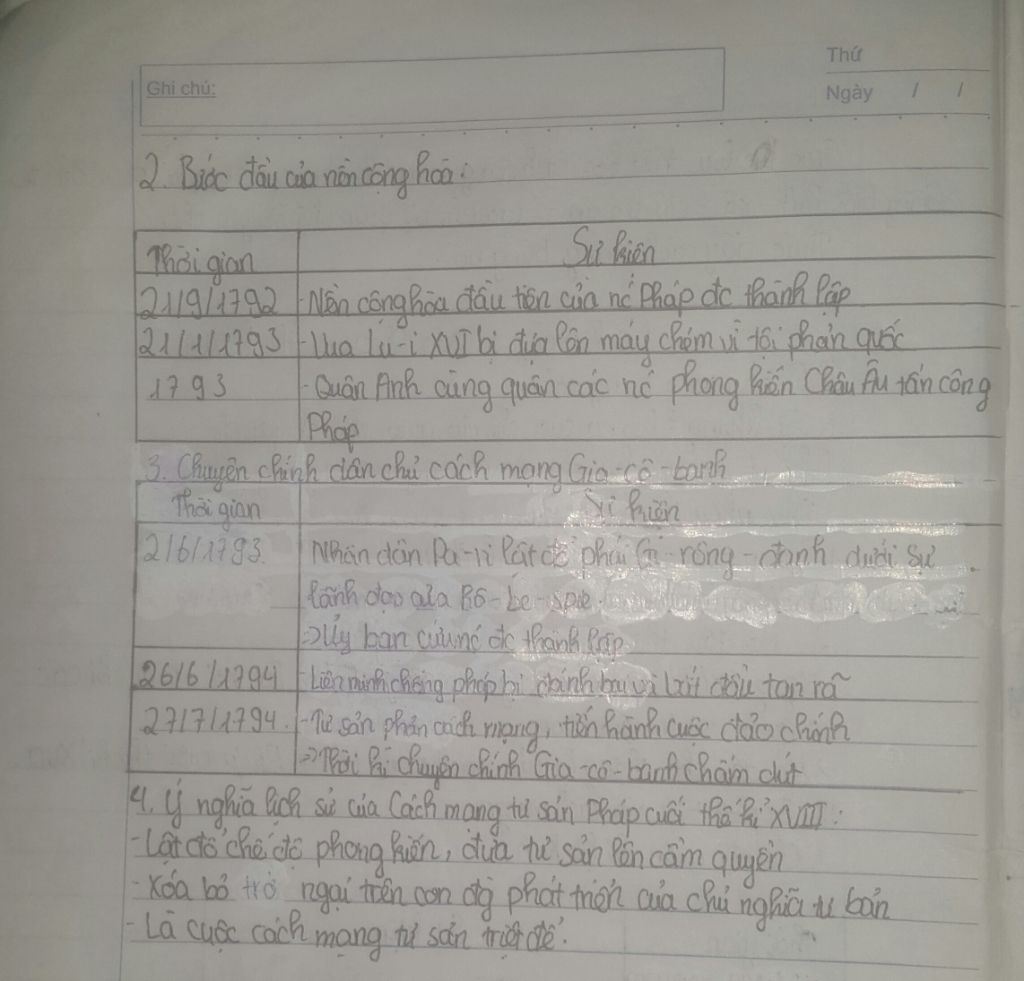 Thứ
Ghi chú:
Ngày / /
2. Bước đầu của nền cộng hoà:
Thời gian Sự kiện
21/9/1792 - Nền cộng hòa đầu tiên của nc Pháp đc thành lập
21/1/1793 - Vua Lu-i XVI bị đưa lên máy chém vì tội phản quốc
1793 - Quân Anh cùng quân các nc phong kiến Châu Âu tấn công
Pháp
3. Chuyên chính dân chủ cách mạng Gia-cô-banh
Thời gian Sự kiện
2/6/1793. Nhân dân Pa-ri lật đổ phái Gi-rông-đanh dưới sự
lãnh đạo của Rô-be-spie.
=> Ủy ban cứu nc đc thành lập
26/6/1794 - Liên minh chống pháp bị đánh bại và bắt đầu tan rã
27/7/1794. - Tư sản phản cách mạng, tiến hành cuộc đảo chính
=> Thời kì chuyên chính Gia-cô-banh chấm dứt
4. Ý nghĩa lịch sử của Cách mạng tư sản Pháp cuối thế kỉ XVIII:
- Lật đổ chế độ phong kiến, đưa tư sản lên cầm quyền
- Xóa bỏ trở ngại trên con đg phát triển của chủ nghĩa tư bản
- Là cuộc cách mạng tư sản triệt để.